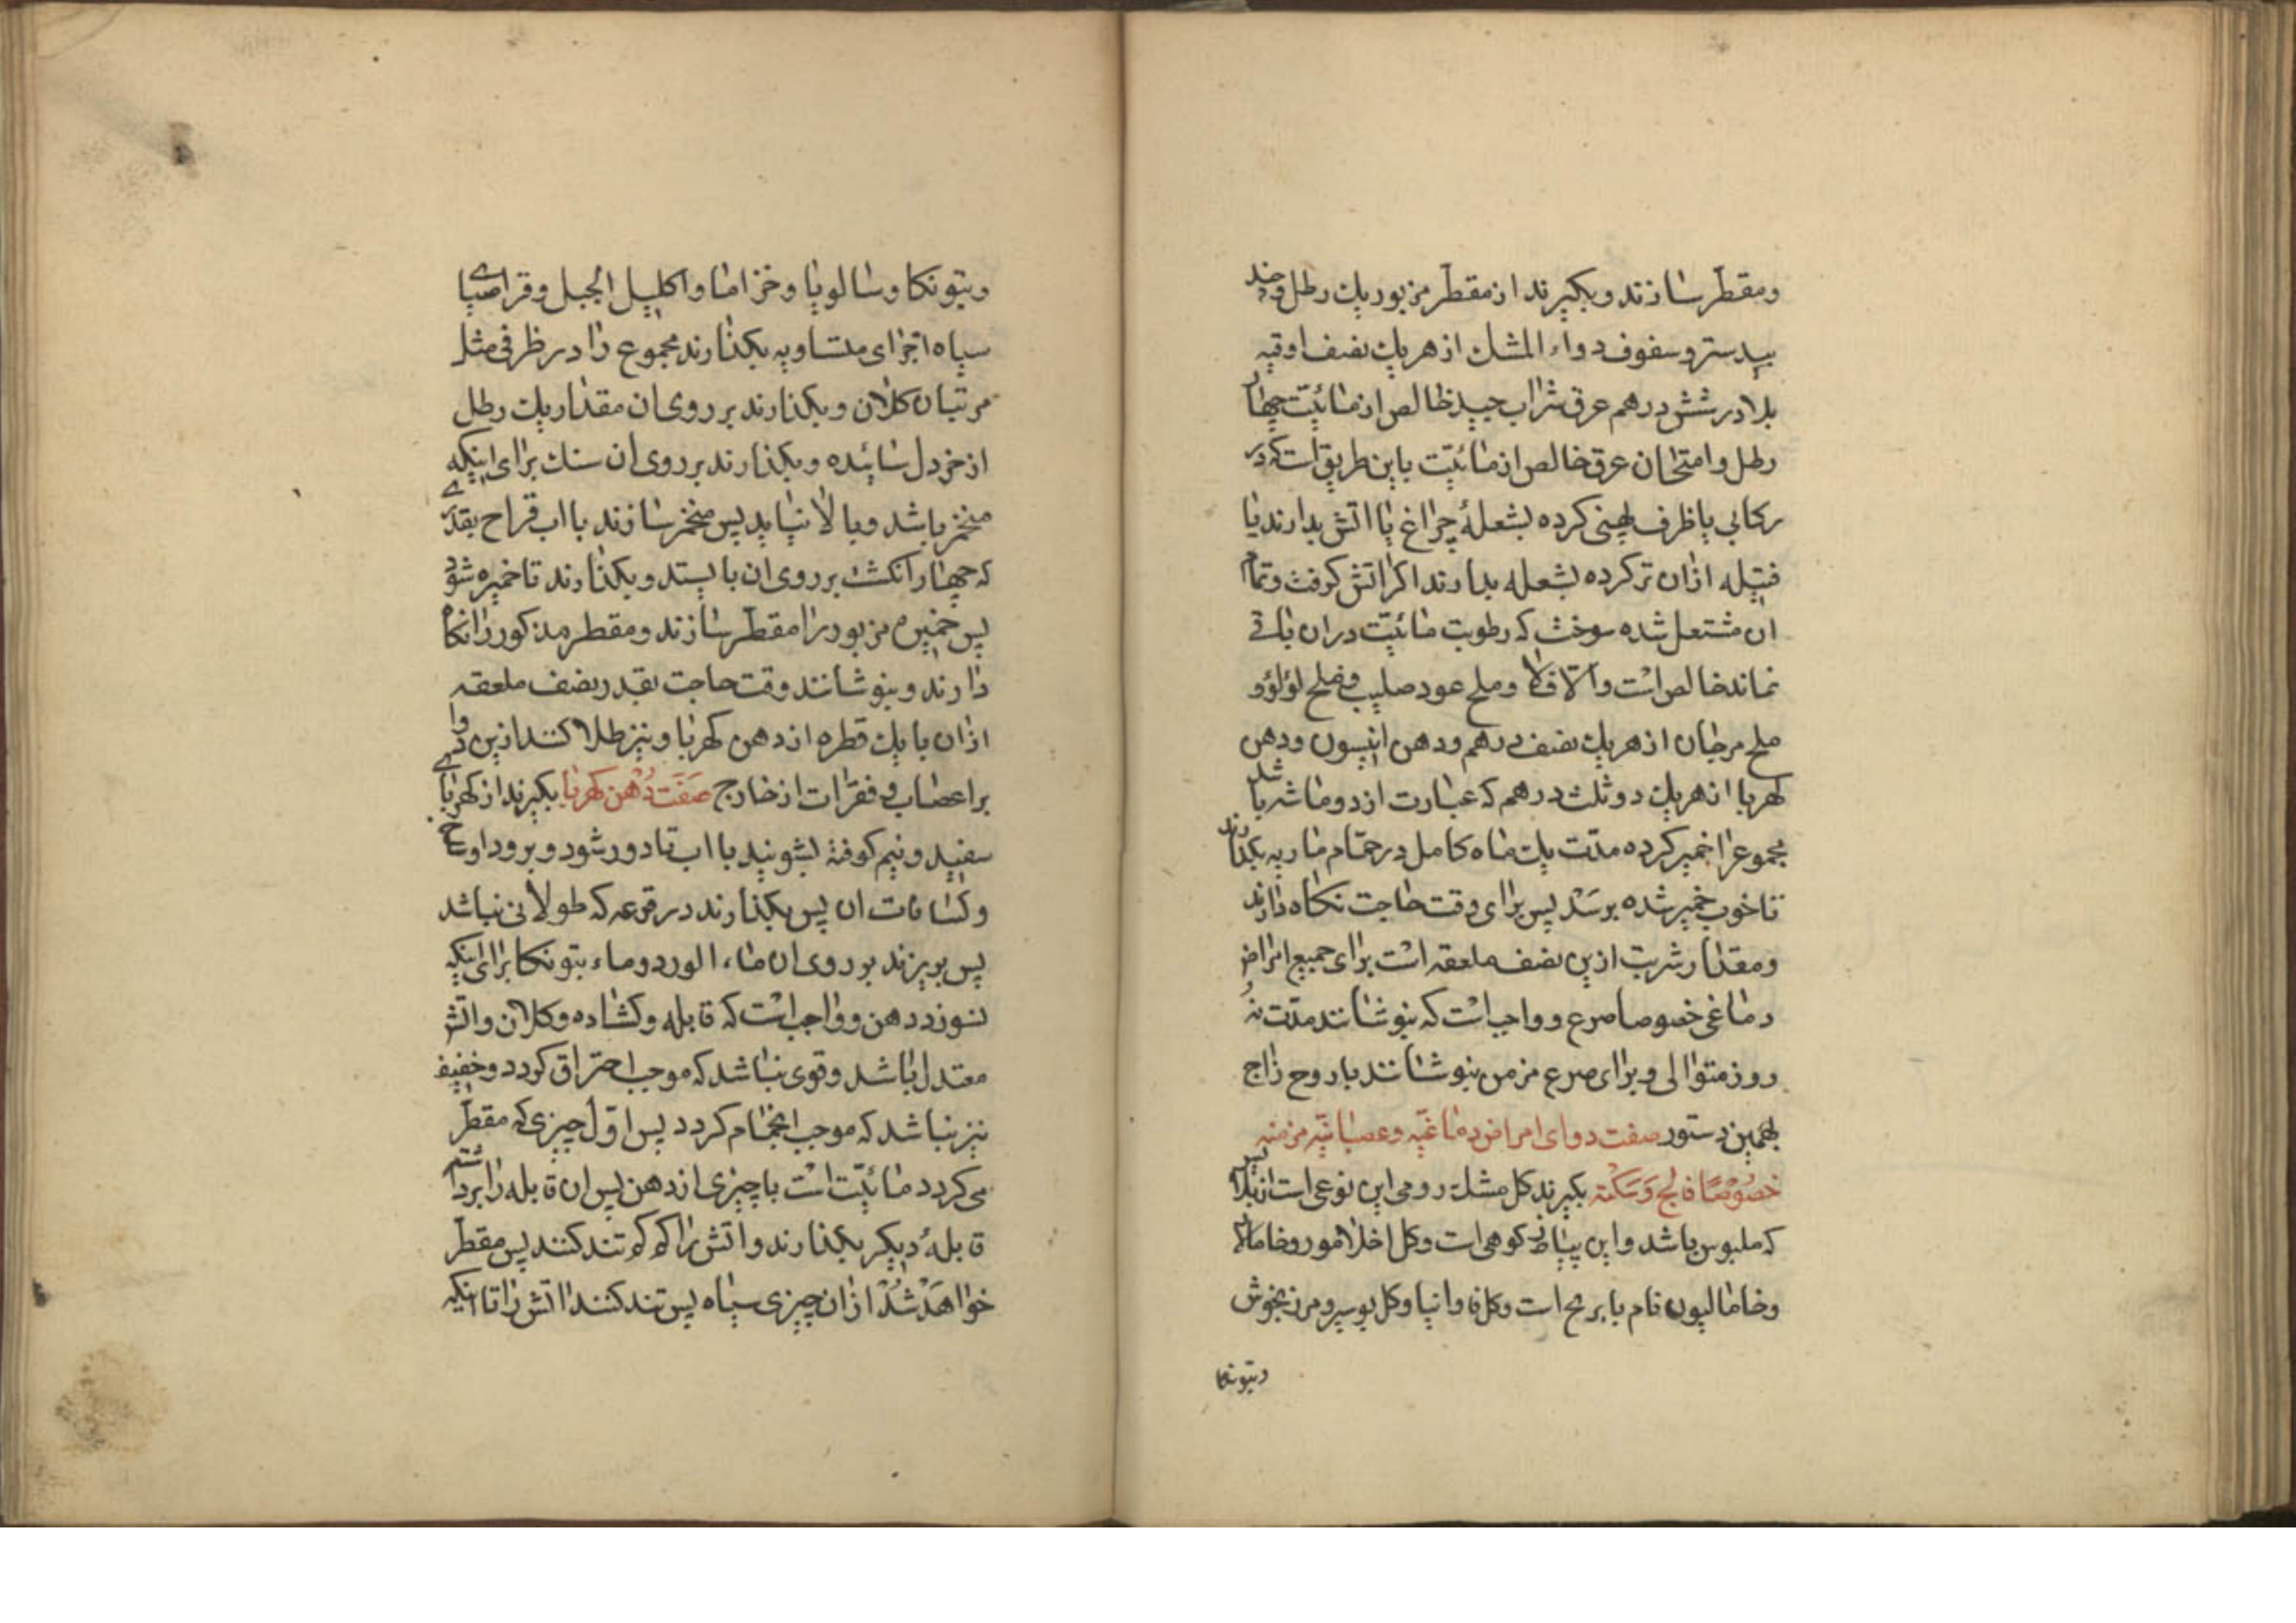 ومقطّر سازند وبکیرند از مقطّر مزبور یك رطل وجند
بیدستر وسفوف دواء المشك از هر یك نصف اوقیه
بلادر شش درهم عرق شراب جید خالص از مائیّت چهار
رطل وامتحان عرق خالص از مائیّت باین طریق است که در
رکابی یا ظرف پهنی کرده بشعلۀ چراغ یا اتش بدارند یا
فتیله ازان تر کرده بشعله بدارند اکر اتش کرفت وتمام
ان مشتعل شده سوخت که رطوبت مائیّت دران باقی
نماند خالص است والا فلا وملح عود صلیب وملح لؤلؤ و
ملح مرجان از هر یك نصف درهم ودهن انیسون ودهن
کهربا از هر یك دو ثلث درهم که عبارت از دو ماشه باشد
مجموعرا خمیر کرده مدّت یك ماه کامل در حمّام ماریه بکذارند
تا خوب خمیر شده برسد پس برای وقت حاجت نکاه دارند
ومقدار شربت ازین نصف ملعقه است برای جمیع امراض
دماغی خصوصا صرع و واجب است که بنوشانند مدّت نه
روز متوالی وبرای صرع مزمن بنوشانند با روح زاج
بهمین دستور صفت دوای امراض دماغیّه وعصبانیّه مزمنه
خصوصًا فالج وسکته بکیرند کل مشك رومی این نوعی است از
که ملبوس باشد واین کوهی است وکل اخلامور وخاما
وخامالیون نام است وکل فاوانیا وکل ومرزنجوش
وبتونکا
وبتونکا وسالویا وخزاما واکلیل الجبل وقراصیای
سیاه اجزای متساویه بکذارند مجموع را در ظرفی مثل
مرتبان کلان وبکذارند بر روی ان مقدار یك رطل
از خردل سائیده وبکذارند بر روی ان سنك برای اینکه
منخمر باشد وبالا نیاید پس منخمر سازند با اب قراح بقدری
که چهار انکشت بر روی ان بایستد وبکذارند تا خمیره شود
پس خمیره مزبور را مقطّر سازند ومقطر مذکور را نکاه
دارند وبنوشانند وقت حاجت بقدر نصف ملعقه
ازان با یك قطره از دهن کهربا ونیز طلا کنند ازین دوا
بر اعصاب وفقرات از خارج صفت دهن کهربا بکیرند از کهربای
سفید ونیم کوفته بشویند با اب تا دور شود وبرود اوساخ
وکثافات ان پس بکذارند در قرعه که طولانی نباشد
پس بریزند بر روی ان ماء الورد وماء بتونکا برای اینکه
نسوزد دهن و واجب است که قابله وکشاده وکلان واتش
معتدل باشد وقوی نباشد که موجب احتراق کردد وخفیف
نیز نباشد که موجب انجام کردد پس اوّل چیزی که مقطّر
می کردد مائیّت است با چیزی از دهن پس ان قابله را برداشته
قابلۀ دیکر بکذارند واتش را کم کم تند کنند پس مقطّر
خواهد شد ازان چیزی سیاه پس تند کنند اتش را تا اینکه